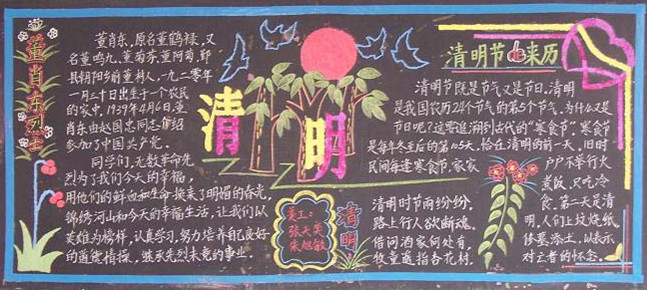 董肖东烈士
董肖东,原名董鹤禄,又
名董鸣九、董菊芳、董阿菊,鄞
县朝阳乡前董村人,一九一二零年
一月三十日出生于一个农民
的家中,1939年4月6日,董
肖东由赵国忠同志介绍
参加了中国共产党。
同学们,无数革命先
烈为了我们今天的幸福,
用他们的鲜血和生命换来了明媚的春光,
锦绣河山和今天的幸福生活,让我们以
英雄为榜样,认真学习,努力培养自己良好
的道德情操,继承先烈未竟的事业。
清明
美工:
张天英
朱旭敏
清明
清明时节雨纷纷,
路上行人欲断魂。
借问酒家何处有,
牧童遥指杏花村。
清明节的来历
清明节既是节气又是节日,清明
是我国农历24个节气的第5个节气。为什么又是
节日呢?这需追溯到古代的“寒食节”,寒食节
是每年冬至后的第105天,恰在清明的前一天,旧时
民间每逢寒食节,家家
户户不举行火
煮饭,只吃冷
食。第二天是清
明,人们上坟烧纸,
修墓添土,以表示
对亡者的怀念。